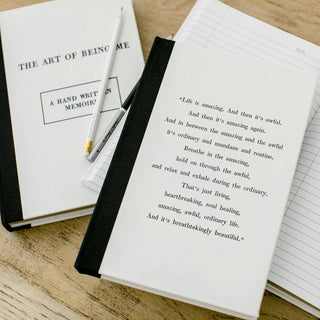 THE ART OF BEING ME
A HAND WRITTEN
MEMOIR
"Life is amazing. And then it's awful.
And then it's amazing again.
And in between the amazing and the awful
it's ordinary and mundane and routine.
Breathe in the amazing,
hold on through the awful,
and relax and exhale during the ordinary.
That's just living,
heartbreaking, soul healing,
amazing, awful, ordinary life.
And it's breathtakingly beautiful."